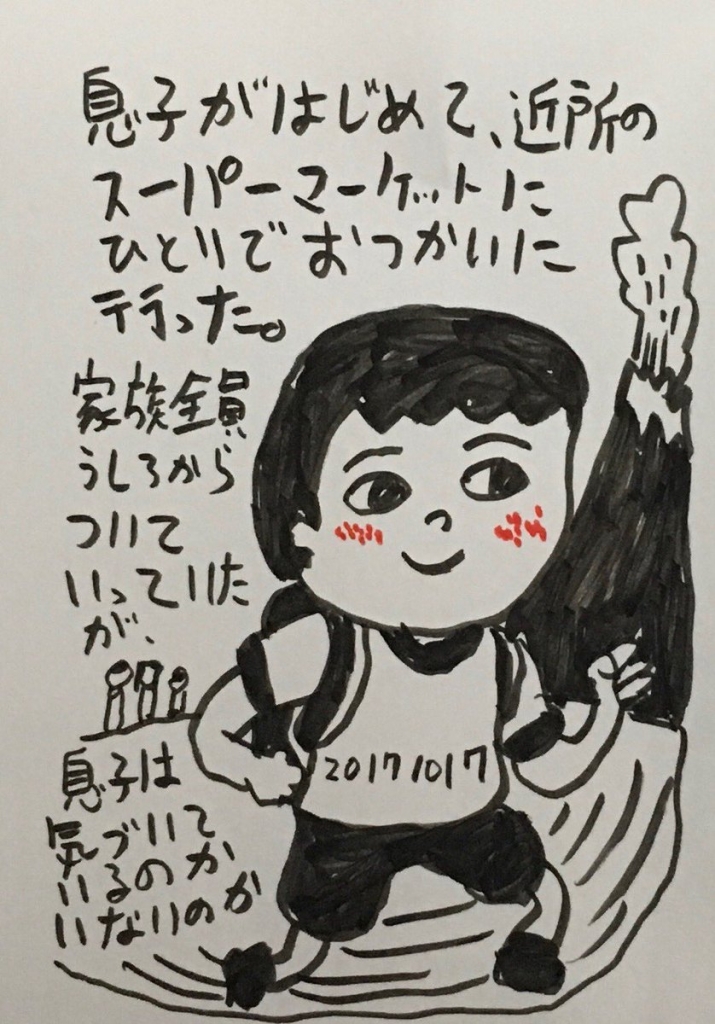 息子がはじめて、近所の
スーパーマーケットに
ひとりでおつかいに
行った。
家族全員
うしろから
ついて
いっていた
が、
息子は
気づいて
いるのか
いないのか
20171017